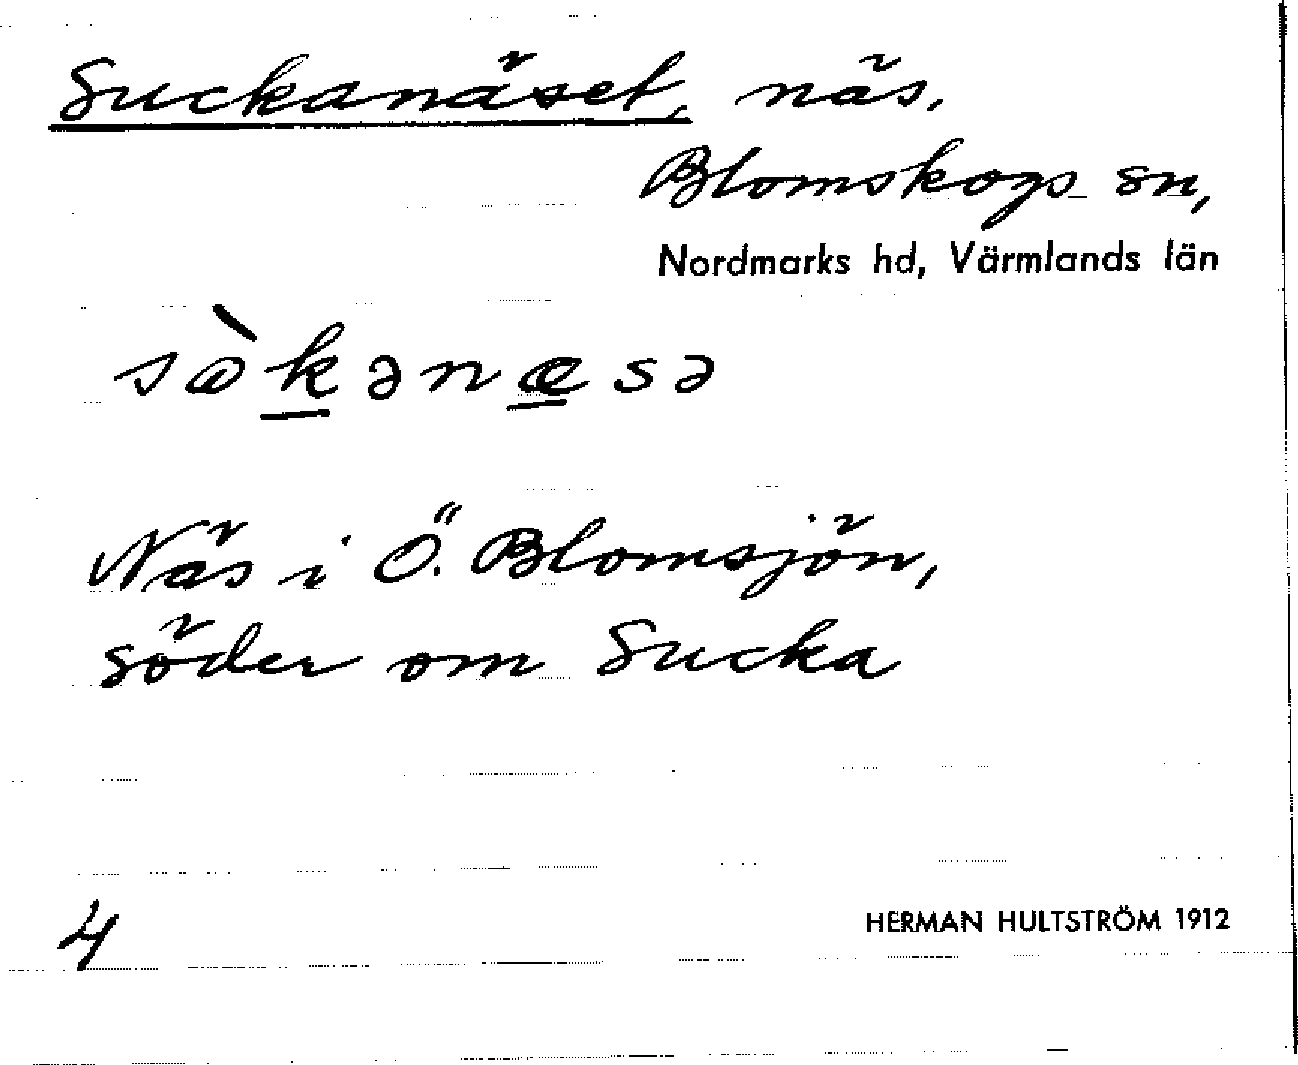 Suckanäset, näs,
Blomskogs sn,
Nordmarks hd, Värmlands län
sòkənæsə
Näs i Ö. Blomsjön,
söder om Sucka
4
HERMAN HULTSTRÖM 1912